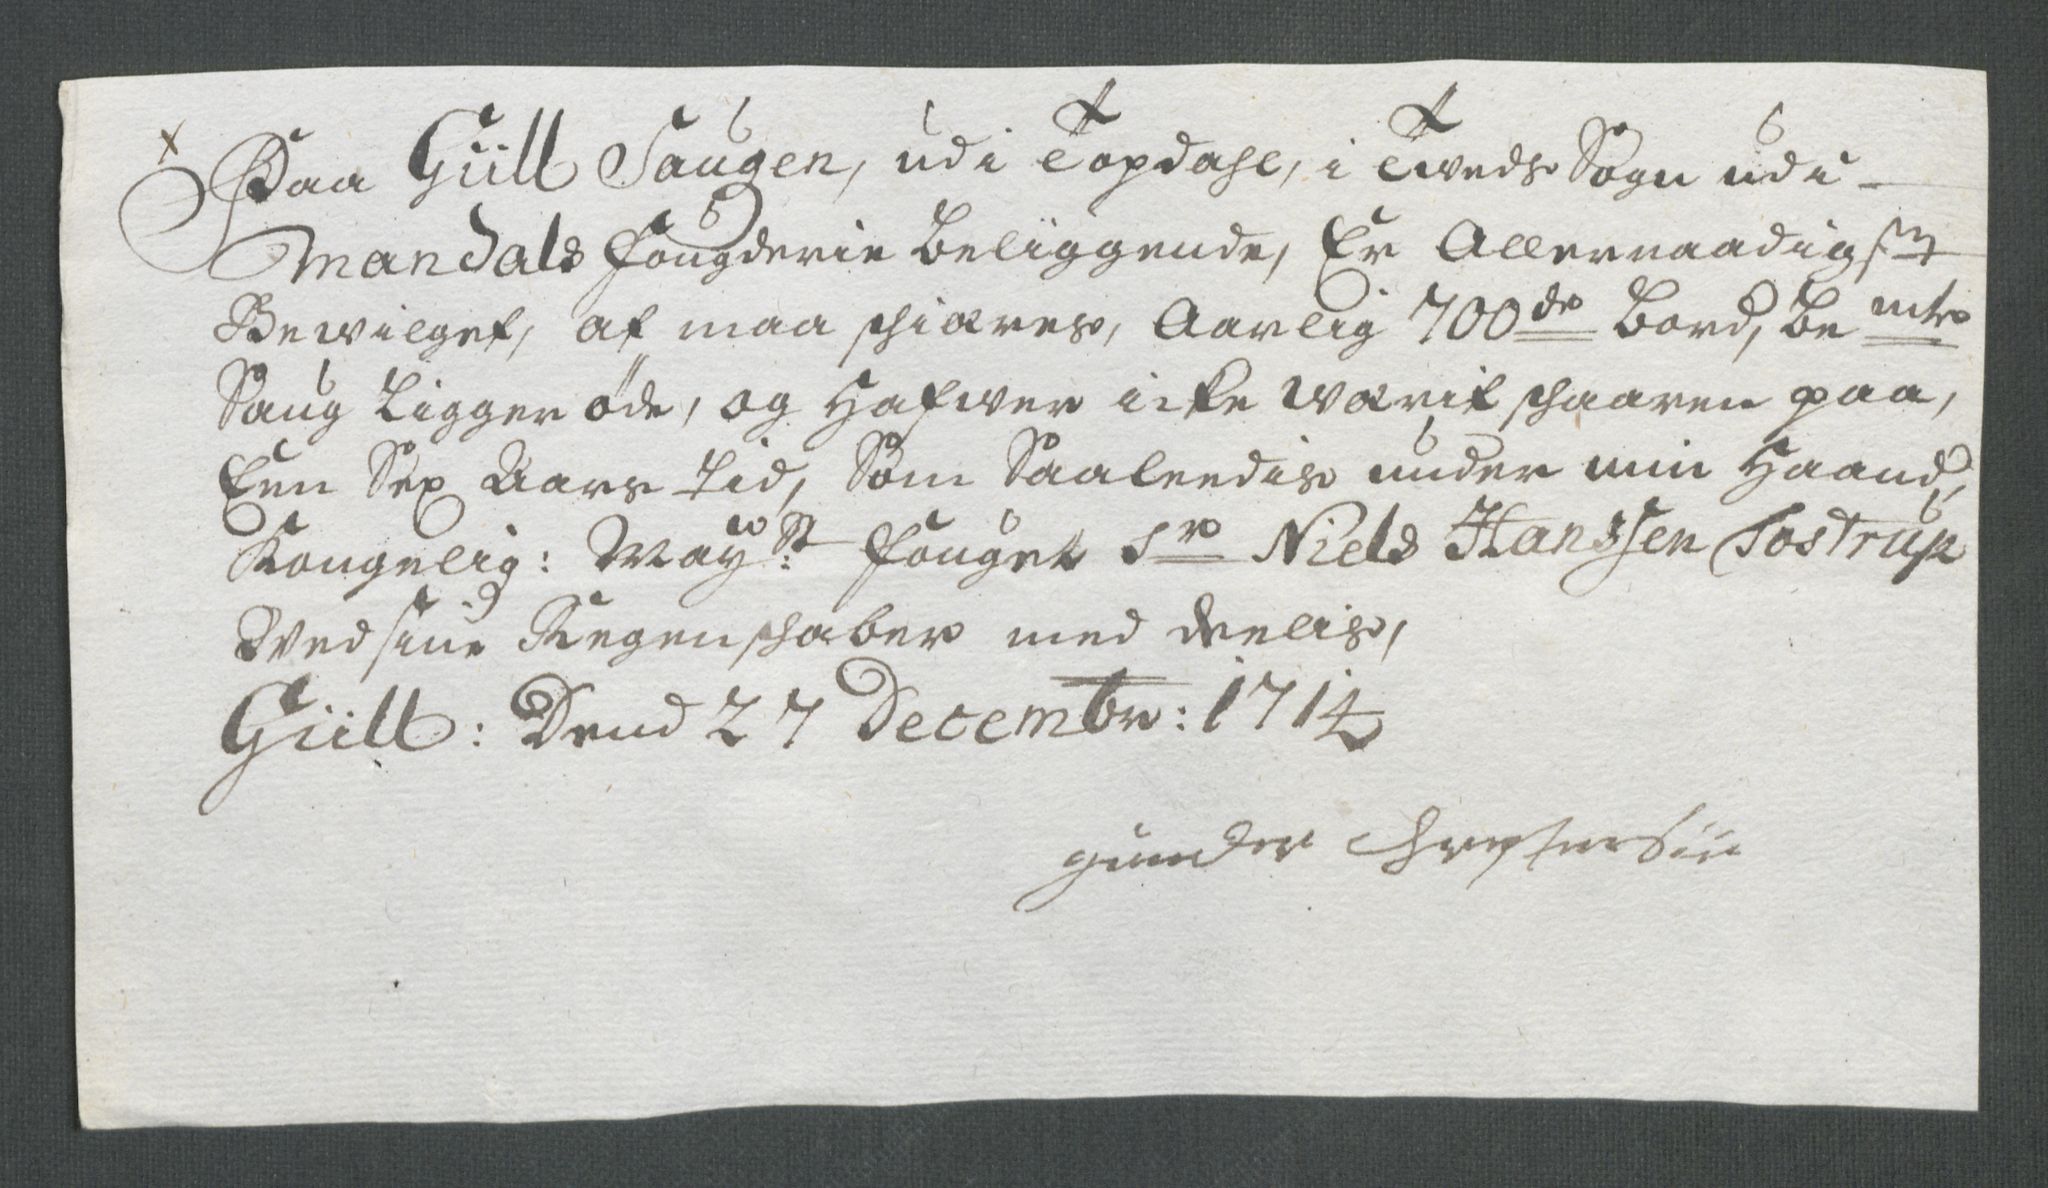 Paa Giill Saugen, udi Topdahl, i Tweds Sogn udi
Mandals Fougderie beliggende, Er Allernaadigst
Bewilget, at maa schiæres, Aarlig 700de Bord, be mte
Saug Ligger øde, og Hafwer icke wærit schaaren paa,
Een Sex Aars Tid, Som Saaleedis under min Haand,
Kongelig: Mayst: Fouget Sr Niels Hanssen Tostrup
Ved sine Regenschaber med deelis,
Giill: Dend 27 Decembr: 1714
gunder